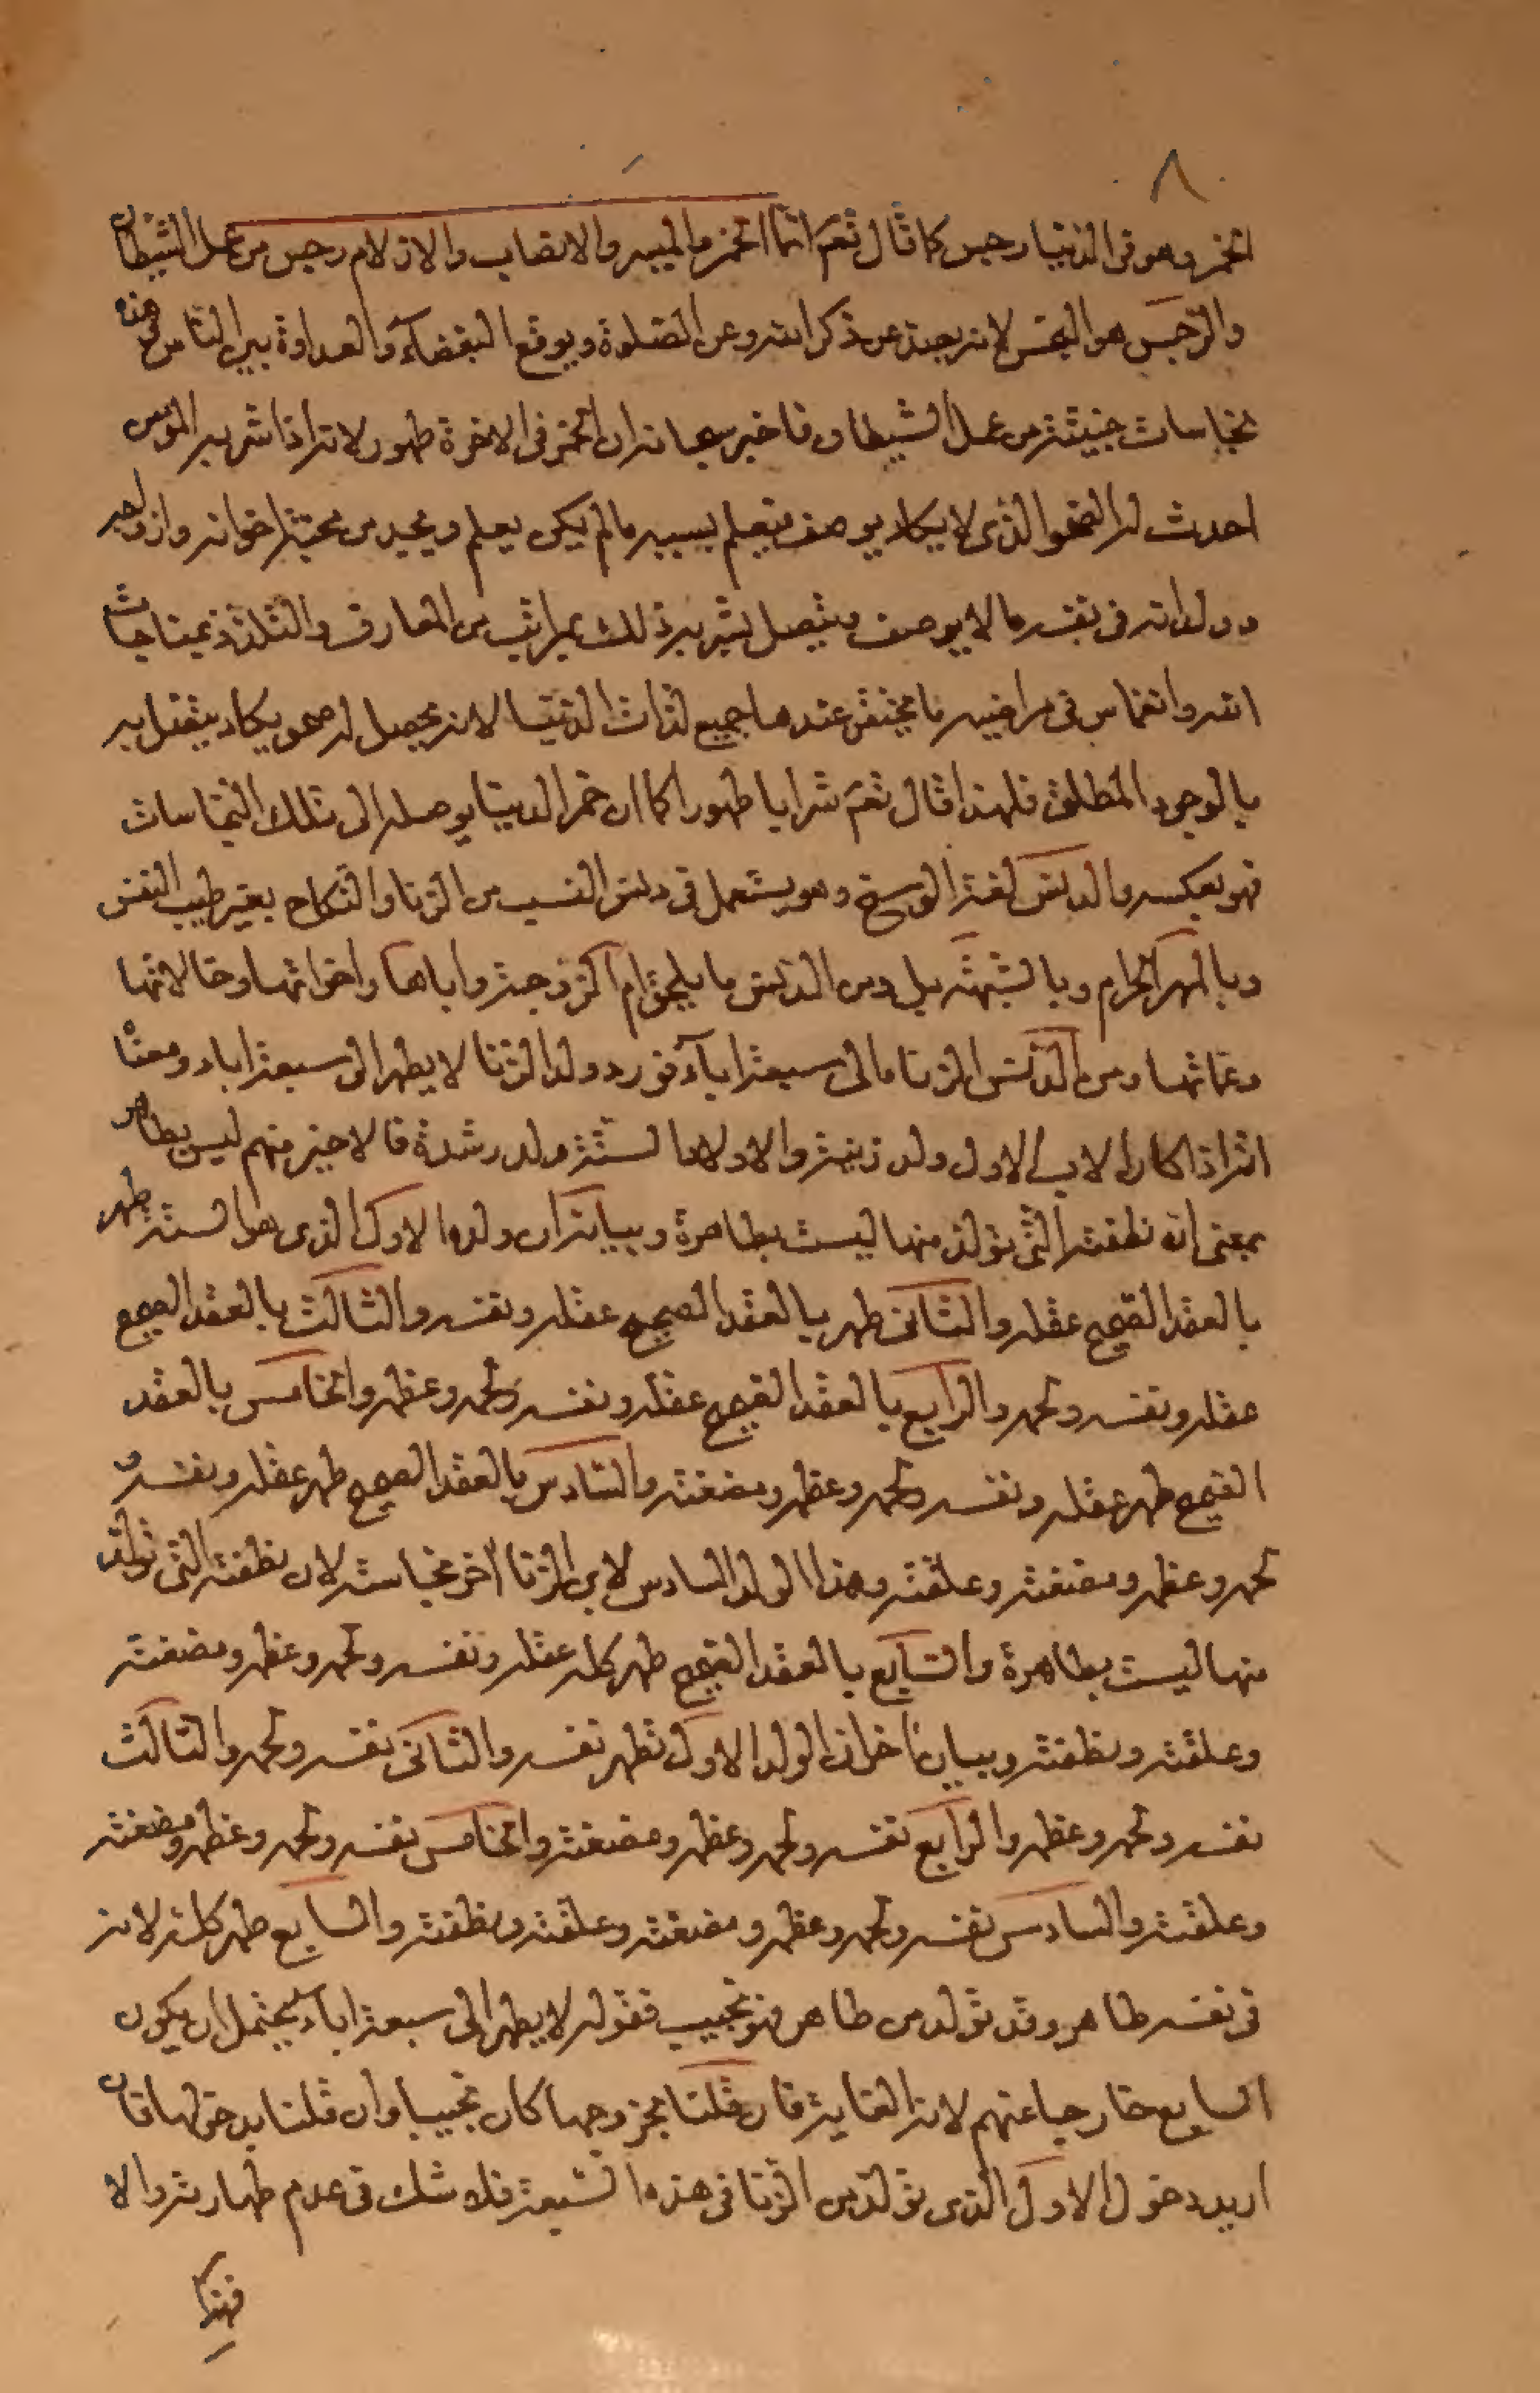 ٨
الخمر وهو في الدنيا رجس كما قال تعم انما الخمر والميسر والانصاب والازلام رجس من عمل الشيطان
والرجس هو النجس لانه يصد عن ذكر الله وعن الصلوة ويوقع البغضاء والعداوة بين الناس فهذه
نجاسات خبيثة من عمل الشيطان فاخبر سبحانه ان الخمر في الاخرة طهور لانه اذا شربه المؤمن
احدث له الصحو الذي لا يكاد يوصف فيعلم بسببه ما لم يكن يعلم ويجد من محبة اخوانه وازواجه
وولدانه في نفسه ما لا يوصف ويتصل بشربه ذلك بمراتب من المعارف والتلذذ بمناجات
الله وانغماس في مراضيه ما يحتقر عندها جميع لذات الدنيا لانه يحصل له صحو يكاد يتصل به
بالوجود المطلق فلهذا قال تعم شرابا طهورا كما ان خمر الدنيا يوصله الى تلك النجاسات
فهو بعكسه والدنس لغة الوسخ وهو يستعمل في دنس النسب من الزنا والنكاح بغير طيب النفس
وبالمهر الحرام وبالشبهة بل ومن الدنس ما يلحق ام الزوجة واباها واخواتها وخالاتها
وعماتها ومن الدنس الزنا مالى سبعة اباء فورد ولد الزنا لا يطهر الى سبعة اباء ومعنا
انه اذا كان الاب الاول ولد زنية والاولاد الستة ولد رشدة فالاخير منهم ليس بطاهر
بمعنى ان نطفته التي تولد منها ليست بطاهرة وبيانه ان ولده الاول الذي هو الستة طهر
بالعقد الصحيح عقله والثاني طهر بالعقد الصحيح عقله ونفسه والثالث بالعقد الصحيح
عقله ونفسه ولحمه والرابع بالعقد الصحيح عقله ونفسه ولحمه وعظمه والخامس بالعقد
الصحيح طهر عقله ونفسه ولحمه وعظمه ومضغته والسادس بالعقد الصحيح طهر عقله ونفسه و
لحمه وعظمه ومضغته وعلقته وهذا الولد السادس لابن الزنا اخر نجاسته لان نطفته التي تولد
منها ليست بطاهرة والسابع بالعقد الصحيح طهر كله عقله ونفسه ولحمه وعظمه ومضغته
وعلقته ونطفته وبيان اخر ان الولد الاول تطهر نفسه والثاني نفسه ولحمه والثالث
نفسه ولحمه وعظمه والرابع نفسه ولحمه وعظمه ومضغته والخامس نفسه ولحمه وعظمه ومضغته
وعلقته والسادس نفسه ولحمه وعظمه ومضغته وعلقته ونطفته والسابع طهر كله لانه
في نفسه طاهر وقد تولد من طاهر فهو نجيب فقوله لا يطهر الى سبعة اباء يحتمل ان يكون
السابع خارجا عنهم لانه الغاية فان قلنا بخروجها كان نجيبا وان قلنا بدخولها فان
اريد دخول الاول الذي تولد من الزنا في هذه السبعة فلا شك في عدم طهارته والا
فهنا